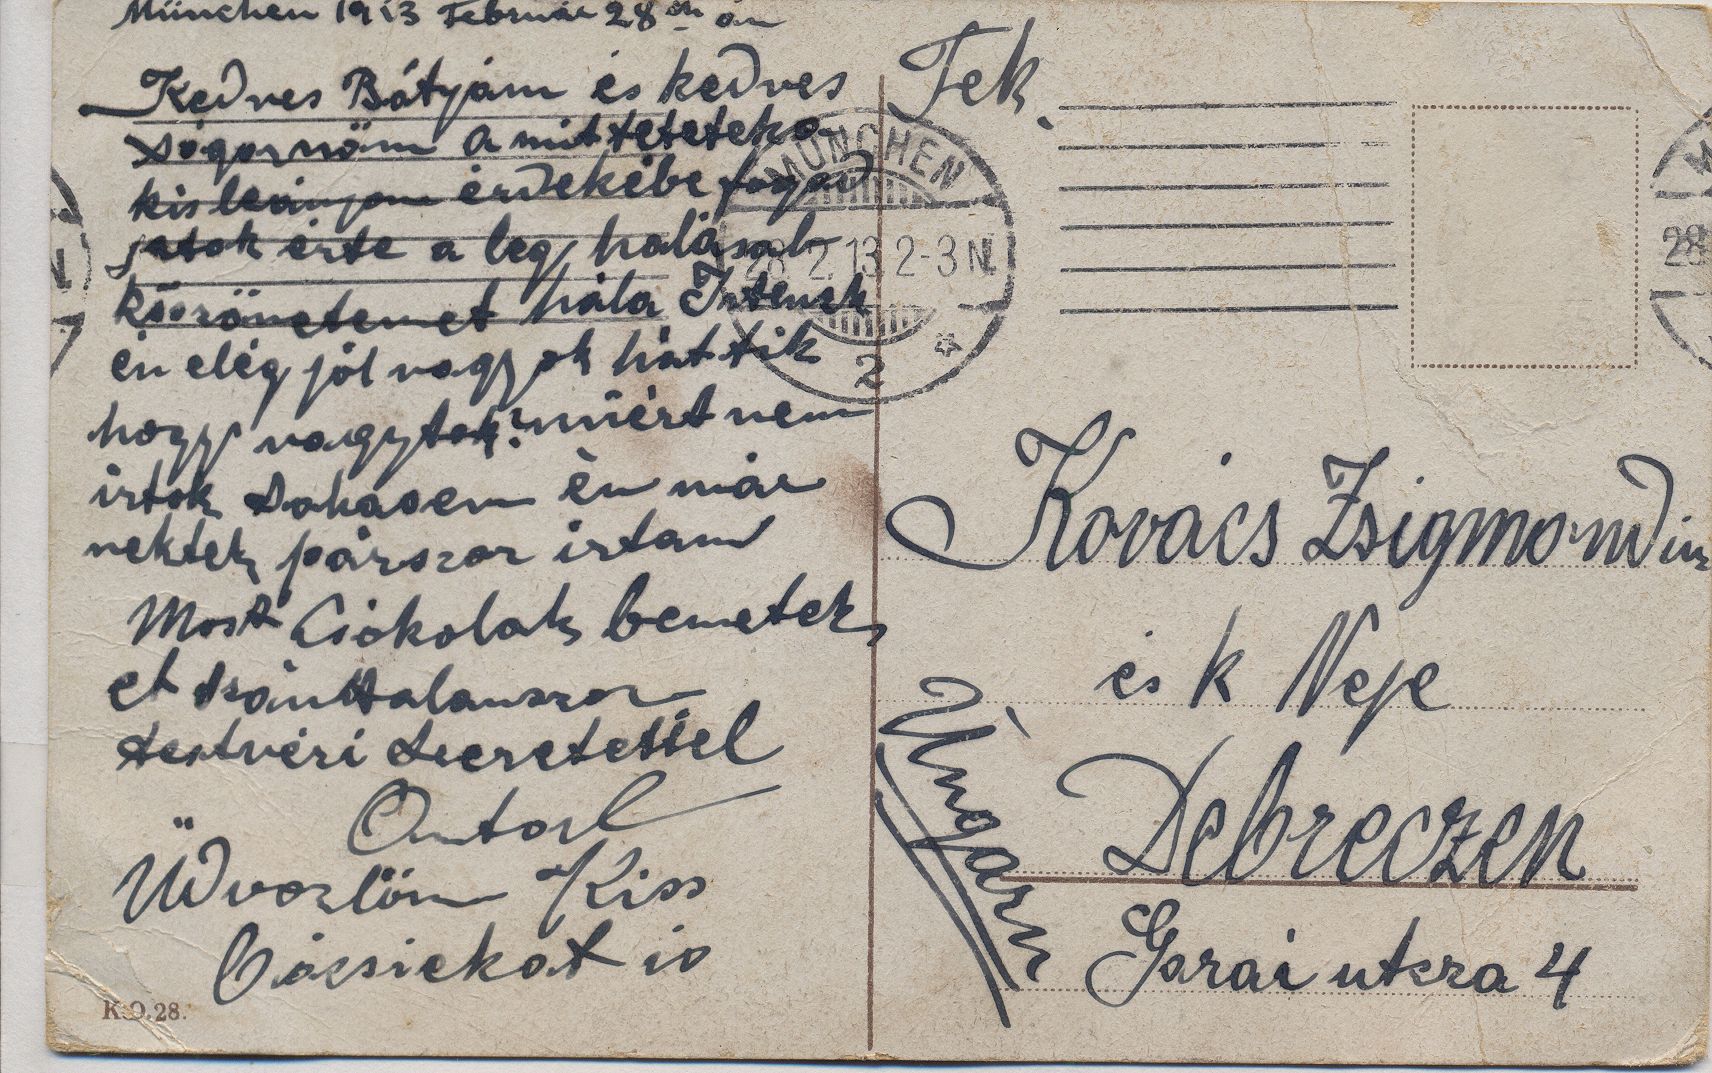 München 1913 Február 28 án
Kedves Bátyám és kedves
Sógornöm a mit tetetek a
kis leányom érdekébe fogad
jatok érte a leg hálásab
köszönetemet hála Istenek
én elég jól vagyok hát tik
hogy vagytok? miért nem
irtok sohasem én már
nektek párszor irtam
Most Csókolak bemetek
et számtalanszor
testvéri szeretettel
Üdvozlöm Kiss
Bácsiekat is
K.O.28.
MÜNCHEN
28 2 13 2-3 N
2
Tek.
Kovács Zsigmond
és k Neje
Debreczen
Garai utcza 4
Ungarn